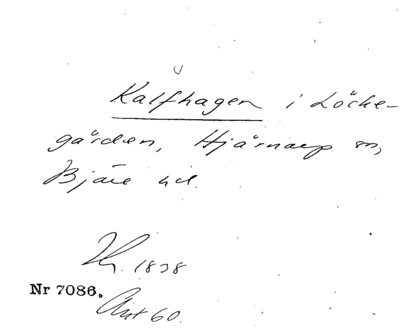 Kalfhagen i Löcke-
gården, Hjärnarp sn,
Bjäre hd.
1838
Nr 7086.
Ant 60.